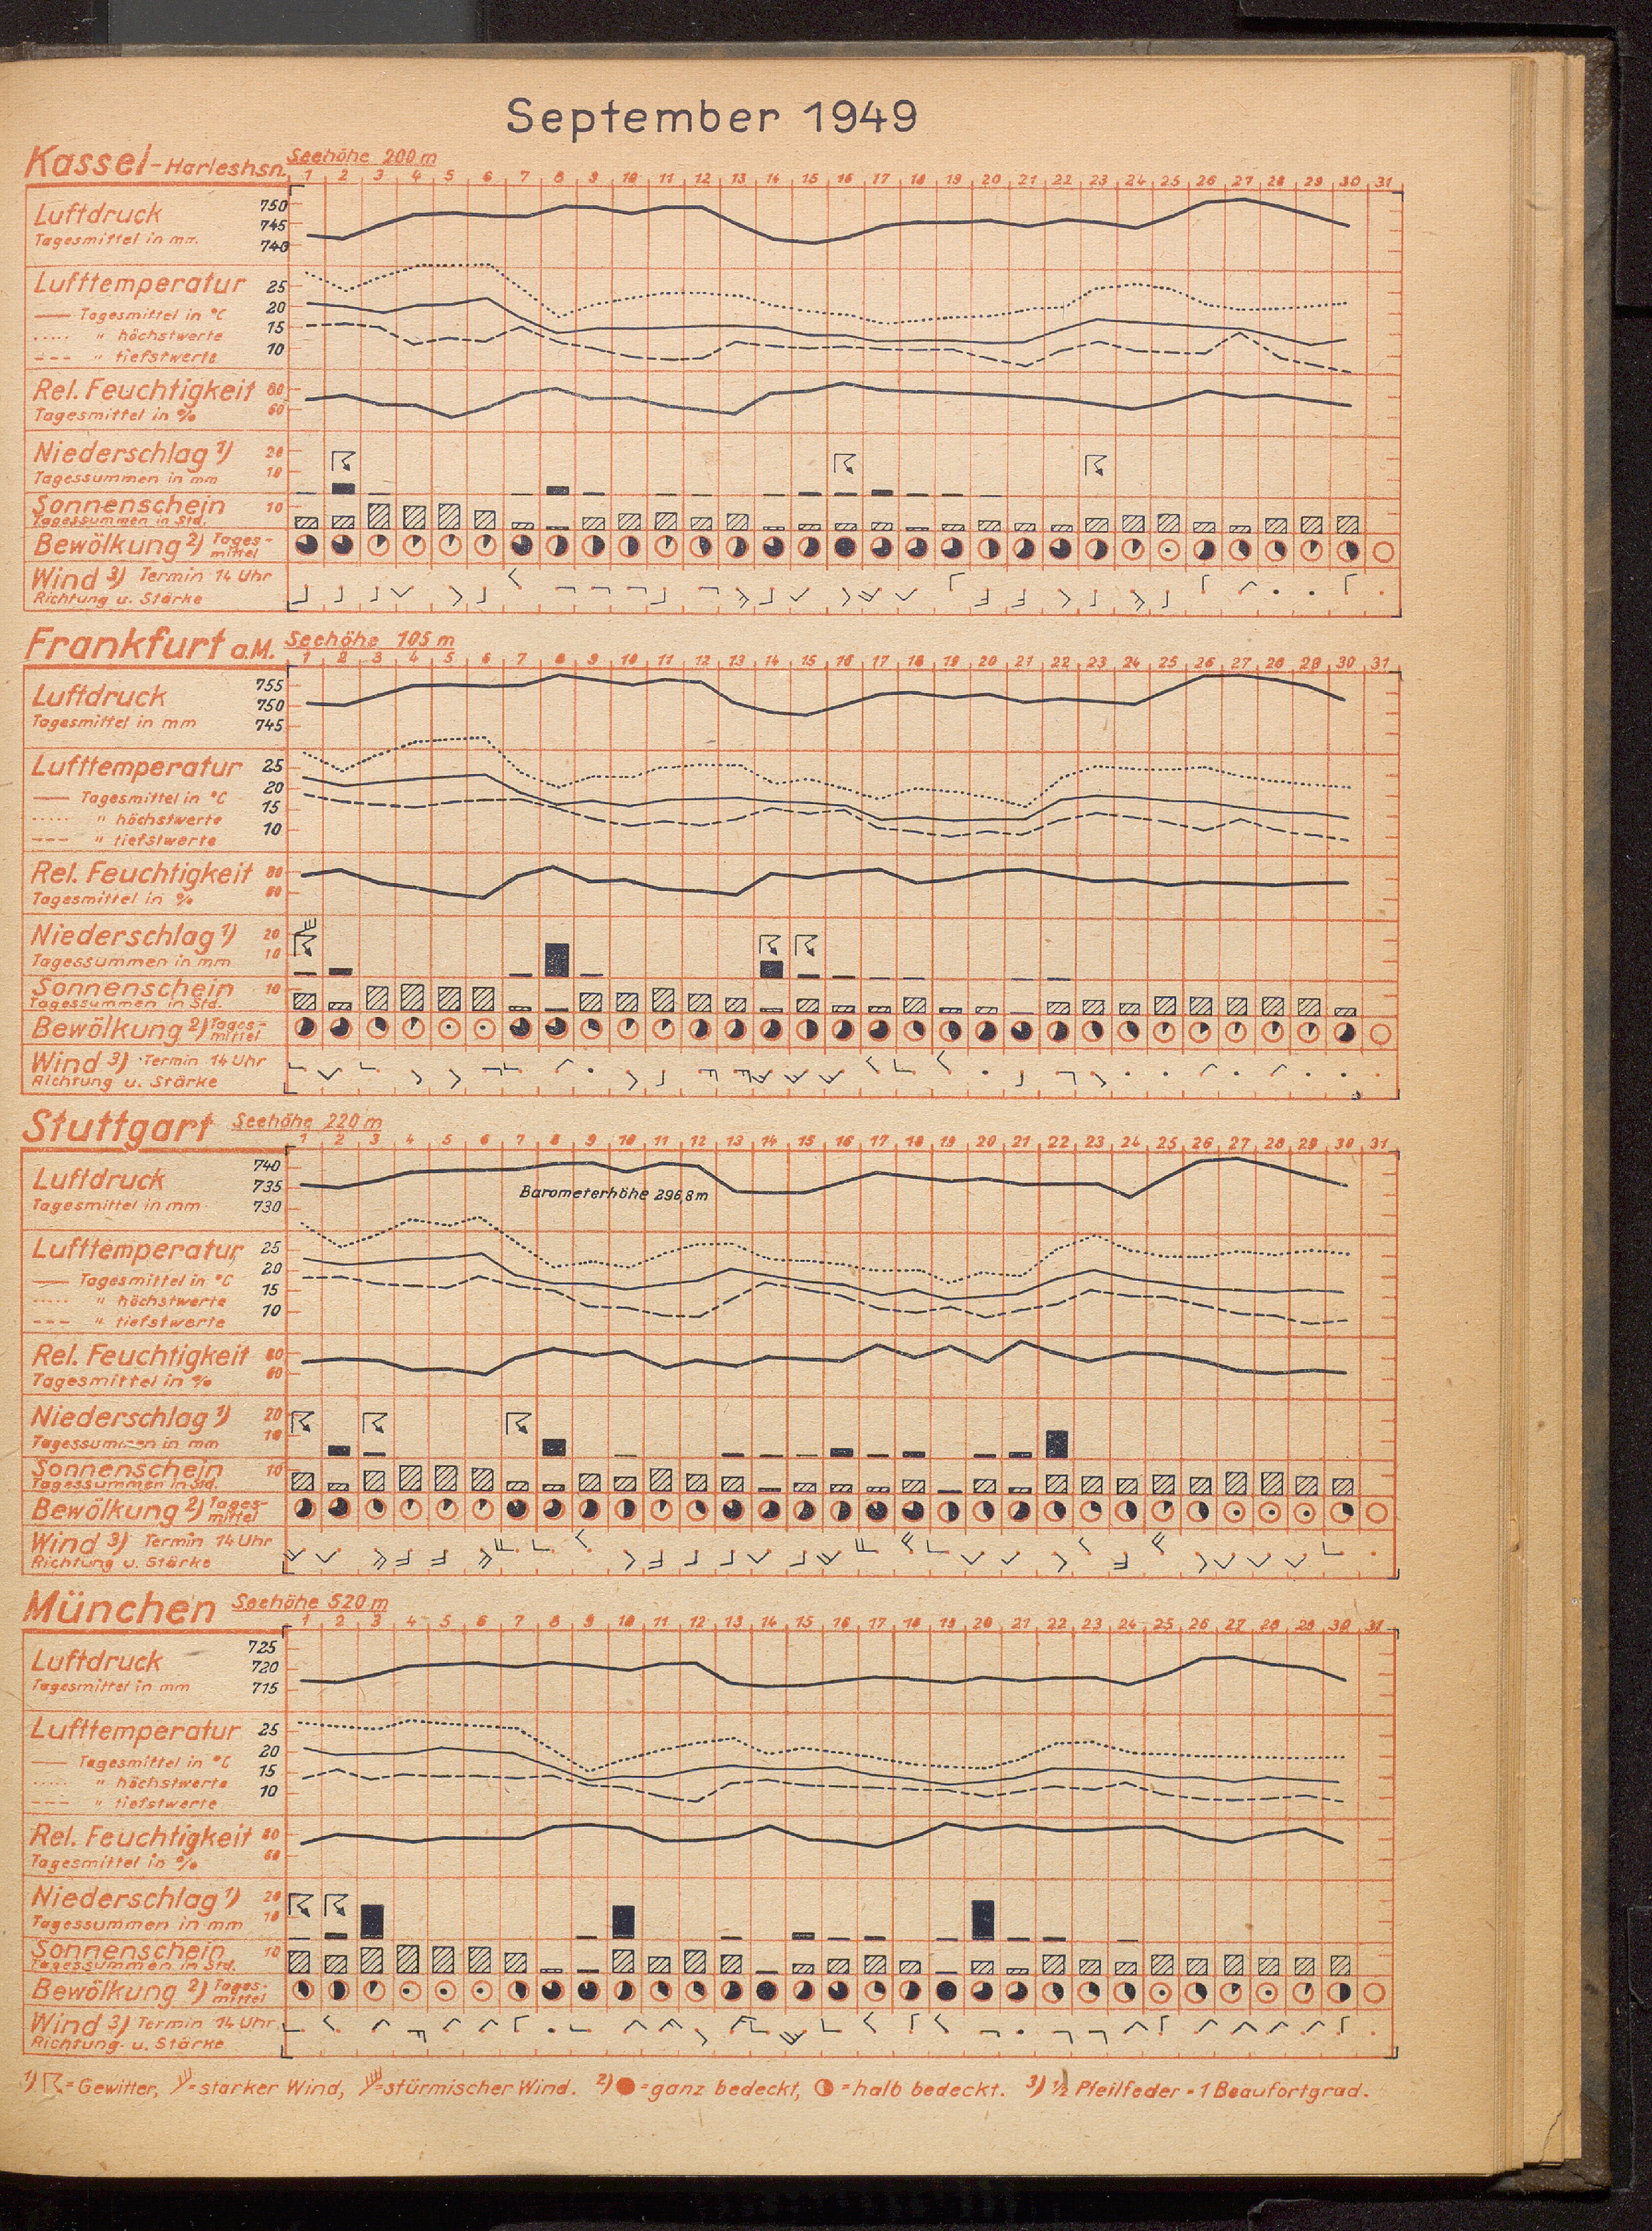 September 1949
Kassel-Harleshsn. Seehöhe 200 m
1 2 3 4 5 6 7 8 9 10 11 12 13 14 15 16 17 18 19 20 21 22 23 24 25 26 27 28 29 30 31
Luftdruck 750
745
Tagesmittel in mm 740
Lufttemperatur 25
20
Tagesmittel in °C 15
" höchstwerte
" tiefstwerte 10
Rel. Feuchtigkeit 80
Tagesmittel in % 60
Niederschlag 1) 20
Tagessummen in mm 10
Sonnenschein 10
Tagessummen in Std.
Bewölkung 2) Tages-
mittel
Wind 3) Termin 14 Uhr
Richtung u. Stärke
Frankfurt a.M. Seehöhe 105 m
1 2 3 4 5 6 7 8 9 10 11 12 13 14 15 16 17 18 19 20 21 22 23 24 25 26 27 28 29 30 31
Luftdruck 755
750
Tagesmittel in mm 745
Lufttemperatur 25
20
Tagesmittel in °C 15
" höchstwerte
" tiefstwerte 10
Rel. Feuchtigkeit 80
Tagesmittel in % 60
Niederschlag 1) 20
Tagessummen in mm 10
Sonnenschein 10
Tagessummen in Std.
Bewölkung 2) Tages-
mittel
Wind 3) Termin 14 Uhr
Richtung u. Stärke
Stuttgart Seehöhe 220 m
1 2 3 4 5 6 7 8 9 10 11 12 13 14 15 16 17 18 19 20 21 22 23 24 25 26 27 28 29 30 31
Luftdruck 740
735
Barometerhöhe 296,8m
Tagesmittel in mm 730
Lufttemperatur 25
20
Tagesmittel in °C 15
" höchstwerte
" tiefstwerte 10
Rel. Feuchtigkeit 80
Tagesmittel in % 60
Niederschlag 1) 20
Tagessummen in mm 10
Sonnenschein 10
Tagessummen in Std.
Bewölkung 2) Tages-
mittel
Wind 3) Termin 14 Uhr
Richtung u. Stärke
München Seehöhe 520 m
1 2 3 4 5 6 7 8 9 10 11 12 13 14 15 16 17 18 19 20 21 22 23 24 25 26 27 28 29 30 31
Luftdruck 725
720
Tagesmittel in mm 715
Lufttemperatur 25
20
Tagesmittel in °C 15
" höchstwerte
" tiefstwerte 10
Rel. Feuchtigkeit 80
Tagesmittel in % 60
Niederschlag 1) 20
Tagessummen in mm 10
Sonnenschein 10
Tagessummen in Std.
Bewölkung 2) Tages-
mittel
Wind 3) Termin 14 Uhr
Richtung u. Stärke
1) = Gewitter, = starker Wind, = stürmischer Wind. 2) = ganz bedeckt, = halb bedeckt. 3) 1/2 Pfeilfeder = 1 Beaufortgrad.